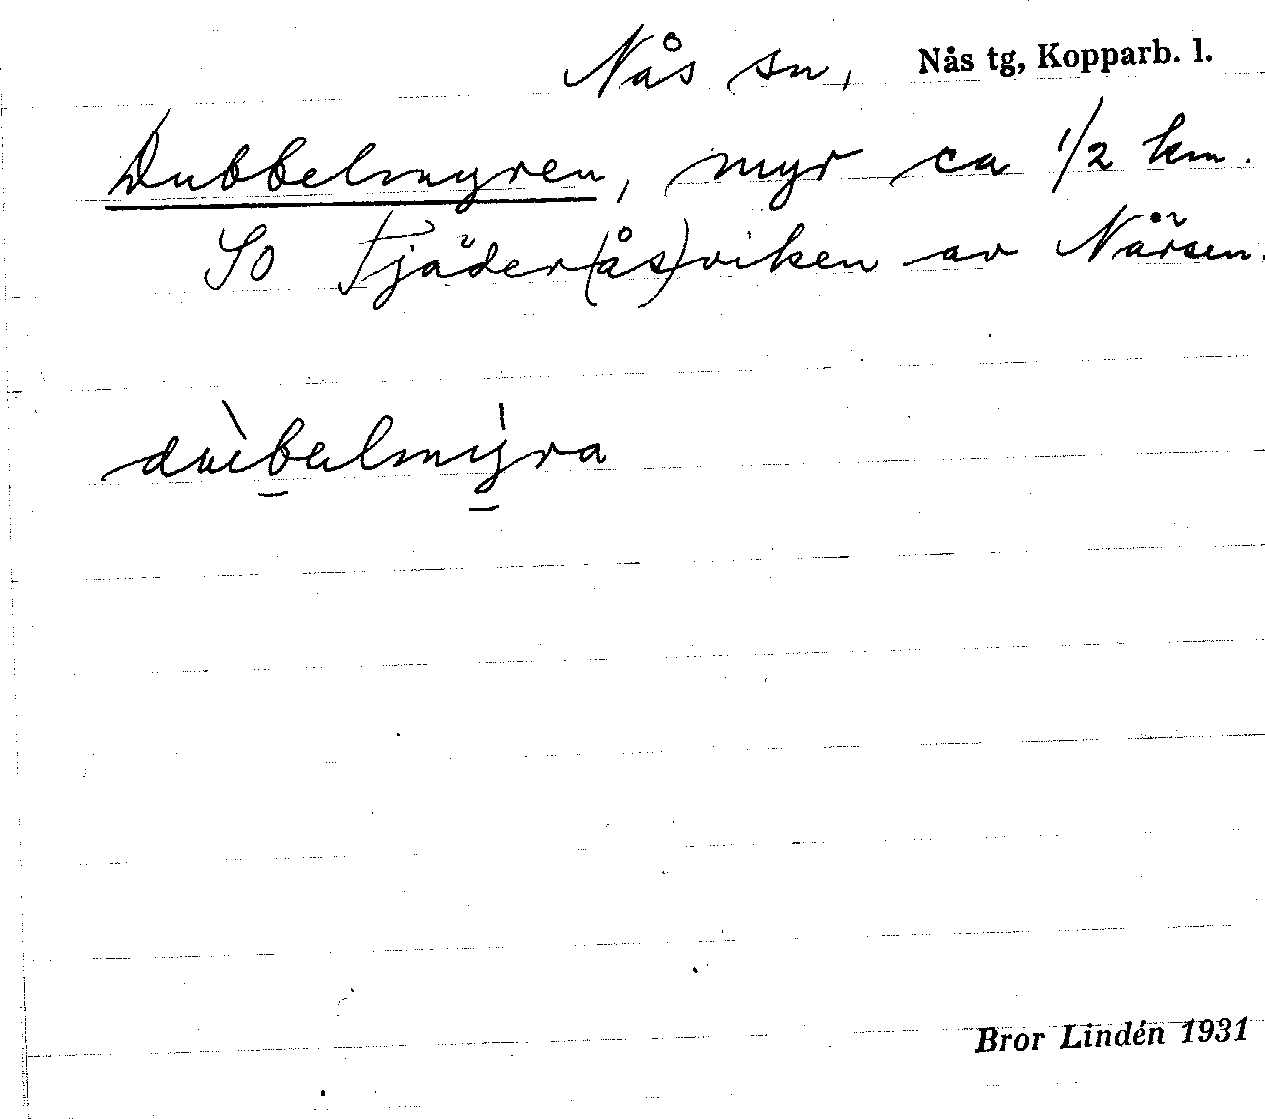 Nås sn, Nås tg, Kopparb. l.
Dubbelmyren, myr ca 1/2 km.
SO Fjäder(ås)viken av Närsen.
dùbəlmýra
Bror Lindén 1931